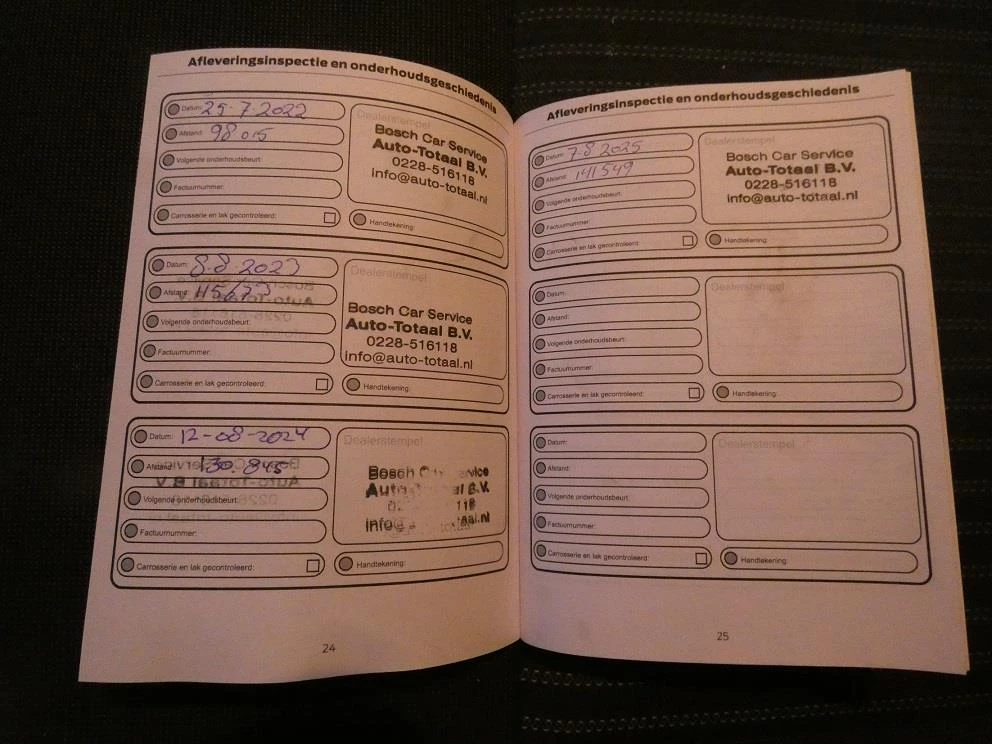 Afleveringsinspectie en onderhoudsgeschiedenis
Datum: 25-7-2022
Afstand: 98015
Volgende onderhoudsbeurt:
Factuurnummer:
Carrosserie en lak gecontroleerd:
Dealerstempel
Bosch Car Service
Auto-Totaal B.V.
0228-516118
info@auto-totaal.nl
Handtekening:
Datum: 8-8-2023
Afstand:
Volgende onderhoudsbeurt:
Factuurnummer:
Carrosserie en lak gecontroleerd:
Dealerstempel
Bosch Car Service
Auto-Totaal B.V.
0228-516118
info@auto-totaal.nl
Handtekening:
Datum: 12-08-2024
Afstand: 130.845
Volgende onderhoudsbeurt:
Factuurnummer:
Carrosserie en lak gecontroleerd:
Dealerstempel
Bosch
Handtekening:
24
Afleveringsinspectie en onderhoudsgeschiedenis
Datum: 7-8 2025
Afstand: 141549
Volgende onderhoudsbeurt:
Factuurnummer:
Carrosserie en lak gecontroleerd:
Dealerstempel
Bosch Car Service
Auto-Totaal B.V.
0228-516118
info@auto-totaal.nl
Handtekening:
Datum:
Afstand:
Volgende onderhoudsbeurt:
Factuurnummer:
Carrosserie en lak gecontroleerd:
Dealerstempel
Handtekening:
Datum:
Afstand:
Volgende onderhoudsbeurt:
Factuurnummer:
Carrosserie en lak gecontroleerd:
Dealerstempel
Handtekening:
25